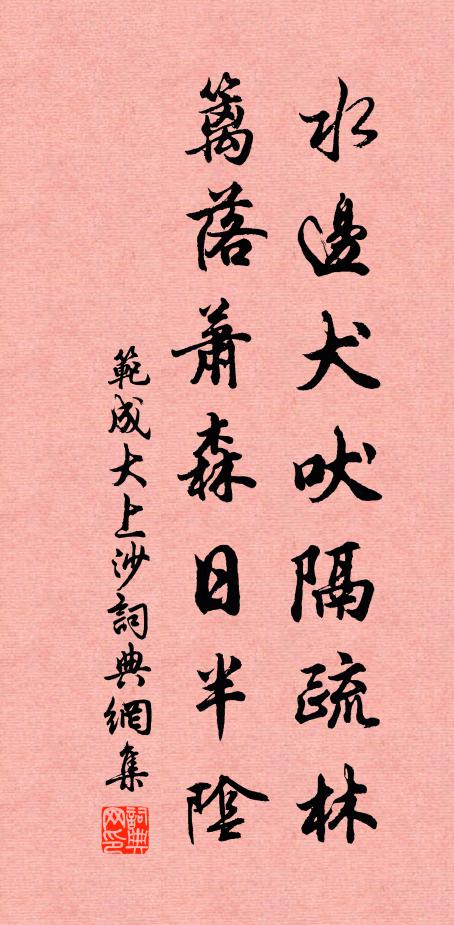 水邊犬吠隔疏林
籬落蕭森日半陰
範成大上沙詞典網集
詞典网印